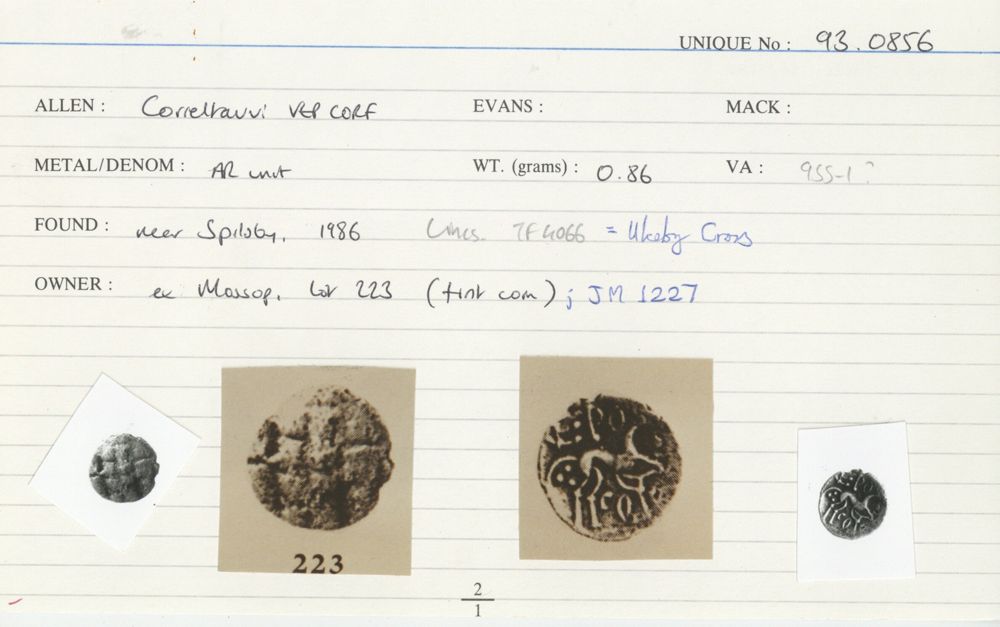 UNIQUE No : 93.0856
ALLEN : Correltauvi VEP CORF EVANS : MACK :
METAL/DENOM : AR unit WT. (grams) : 0.86 VA : 955-1 ?
FOUND : near Spilsby, 1986 Lincs. TF 4066 = Ulceby Cross
OWNER : ex Mossop, Lot 223 (first coin) ; JM 1227
223
2
1